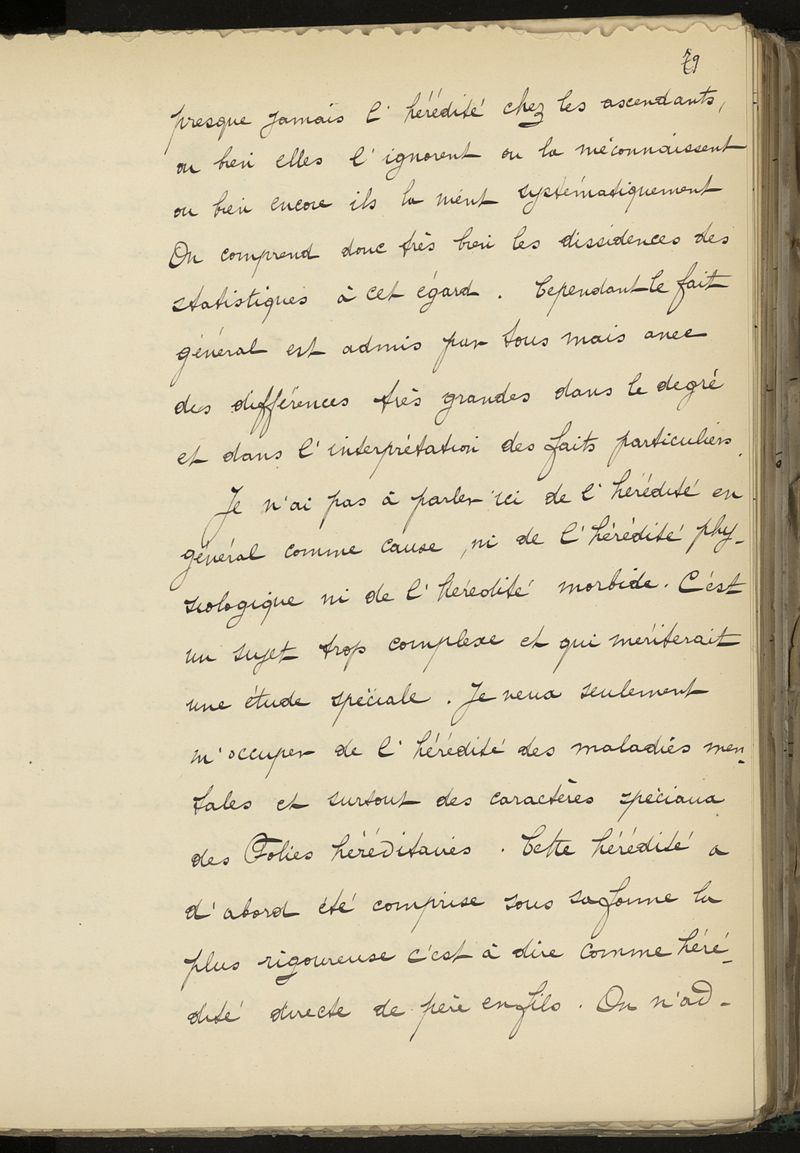 79
presque jamais l'hérédité chez les ascendants,
ou bien elles l'ignorent ou la méconnaissent
ou bien encore ils la nient systématiquement
On comprend donc très bien les dissidences des
statistiques à cet égard. Cependant le fait
général est admis par tous mais avec
des différences très grandes dans le degré
et dans l'interprétation des faits particuliers.
Je n'ai pas à parler ici de l'hérédité en
général comme cause, ni de l'hérédité phy-
siologique ni de l'hérédité morbide. C'est
un sujet trop complexe et qui mériterait
une étude spéciale. Je veux seulement
m'occuper de l'hérédité des maladies men-
tales et surtout des caractères spéciaux
des Folies héréditaires. Cette hérédité a
d'abord été comprise sous sa forme la
plus rigoureuse c'est à dire comme héré-
dité directe de père en fils. On n'ad-